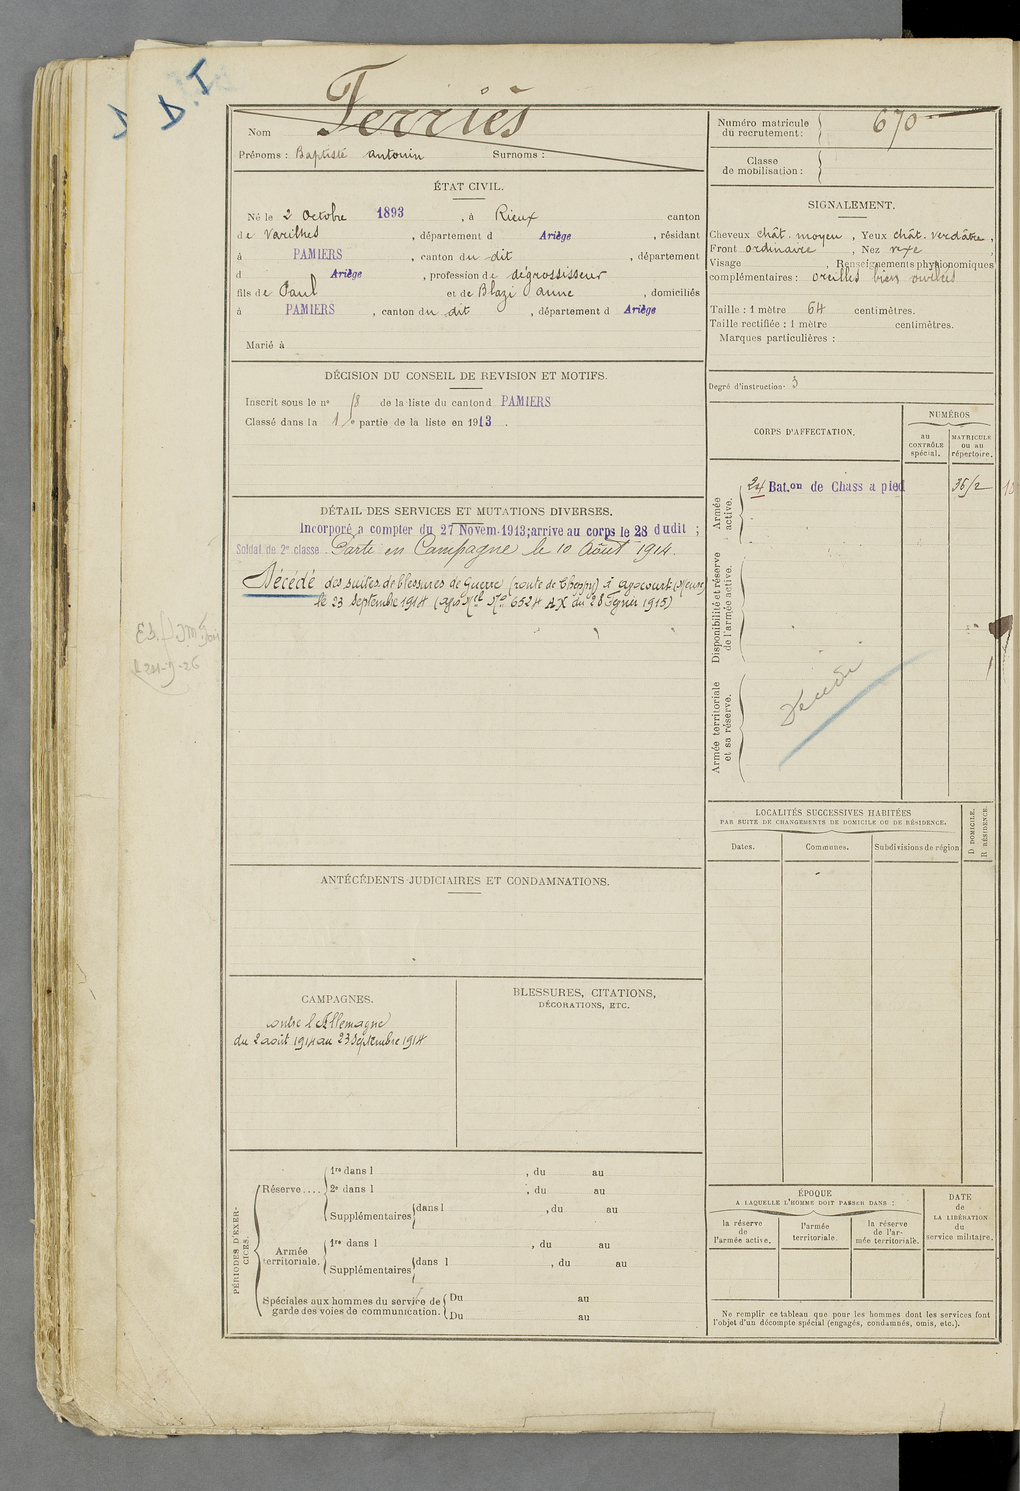 D. I
Ferriès
Nom
Prénoms : Baptiste antonin Surnoms :
Numéro matricule du recrutement : 670
Classe de mobilisation :
ÉTAT CIVIL.
Né le 2 Octobre 1893, à Rieux canton
de Varilhes, département d Ariège, résidant
à PAMIERS, canton du dit, département
d Ariège, profession de dégrossisseur
fils de Paul et de Blazi Anne, domiciliés
à PAMIERS, canton du dit, département d Ariège
Marié à
SIGNALEMENT.
Cheveux chât. moyen, Yeux chât. verdâtre,
Front ordinaire, Nez
Visage , Renseignements physionomiques
complémentaires : oreilles bien ourlées
Taille : 1 mètre 64 centimètres.
Taille rectifiée : 1 mètre centimètres.
Marques particulières :
Degré d'instruction : 3
DÉCISION DU CONSEIL DE REVISION ET MOTIFS.
Inscrit sous le n° 18 de la liste du canton d PAMIERS
Classé dans la 1e partie de la liste en 1913.
CORPS D'AFFECTATION.
NUMÉROS
au CONTRÔLE spécial.
MATRICULE ou au répertoire.
Armée active.
24 Bat.on de Chass a pied
Disponibilité et réserve de l'armée active.
Armée territoriale et sa réserve.
DÉTAIL DES SERVICES ET MUTATIONS DIVERSES.
Incorporé a compter du 27 Novem. 1913; arrive au corps le 28 dudit ;
Soldat de 2e classe. Parti en Campagne le 10 Août 1914.
Décédé des suites de blessures de guerre (route de Cheppy) à Avocourt (Meuse)
le 23 Septembre 1914 (avis Mel No 6524 AX du 28 1915)
LOCALITÉS SUCCESSIVES HABITÉES
PAR SUITE DE CHANGEMENTS DE DOMICILE OU DE RÉSIDENCE.
Dates.
Communes.
Subdivisions de région
D. DOMICILE.
R. RÉSIDENCE.
ANTÉCÉDENTS JUDICIAIRES ET CONDAMNATIONS.
CAMPAGNES.
contre l'Allemagne
du 2 août 1914 au 23 Septembre 1914
BLESSURES, CITATIONS,
DÉCORATIONS, ETC.
PÉRIODES D'EXERCICES.
Réserve....
1re dans l , du au
2e dans l , du au
Supplémentaires dans l , du au
Armée territoriale.
1re dans l , du au
Supplémentaires dans l , du au
Spéciales aux hommes du service de garde des voies de communication.
Du au
Du au
ÉPOQUE
A LAQUELLE L'HOMME DOIT PASSER DANS :
la réserve de l'armée active.
l'armée territoriale.
la réserve de l'armée territoriale.
DATE de LA LIBÉRATION du service militaire.
Ne remplir ce tableau que pour les hommes dont les services font
l'objet d'un décompte spécial (engagés, condamnés, omis, etc.).